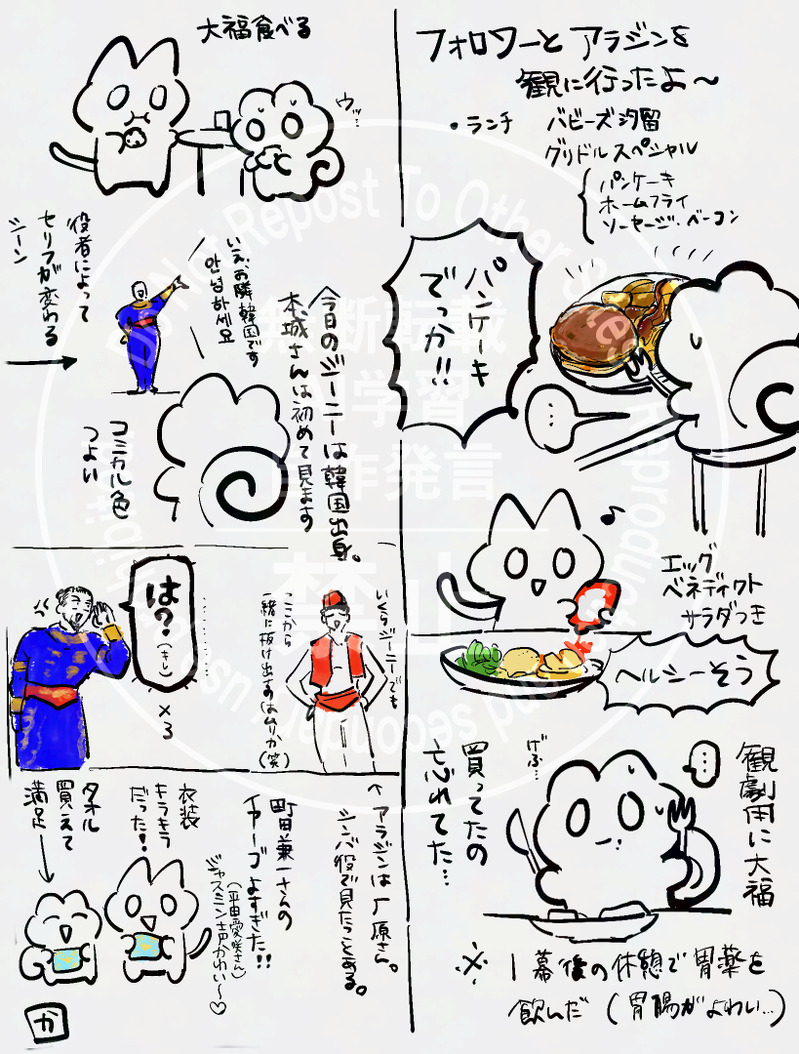 フォロワーとアラジンを
観に行ったよ〜
・ランチ バビーズ汐留
グリドルスペシャル
パンケーキ
ホームフライ
ソーセージ・ベーコン
パンケーキ
でっか!!
…
♪
エッグ
ベネディクト
サラダつき
ヘルシーそう
観劇用に大福
…
げふ…
買ってたの
忘れてた…
※1幕後の休憩で胃薬を
飲んだ(胃腸がよわい…)
大福食べる
ウッ…
役者によって
セリフが変わる
シーン
いえ、お隣韓国です
안녕하세요
今日のジーニーは韓国出身。
本城さんは初めて見ます
コミカル色
つよい
いくらジーニーでも
ここから
一緒に抜け出すのはムリか(笑)
…………
は?(キレ)
×3
↑アラジンは厂原さん。
シンバ役で見たことある。
町田兼一さんの
イアーゴよすぎた!!
(平田愛咲さん)
ジャスミン声かわいい〜♡
衣装
キラキラ
だった!
タオル
買えて
満足
か
無断転載
AI学習
自作発言
禁止
Do Not Repost To Other Sites